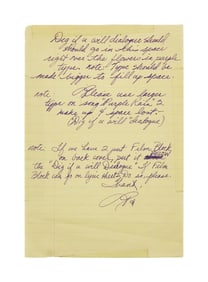 Dig if u will dialogue should
should go in this space
right over the flower in purple
type. note: Type should be
made bigger to fill up space.
note: Please use larger
type on song Purple Rain 2
make up 4 space lost.
(Dig if u will dialogue)
note: If we have 2 put Film Block
on back cover, put it
the "Dig if u will Dialogue" If Film
Block can go on lyric sheet, do so, please.
Thank